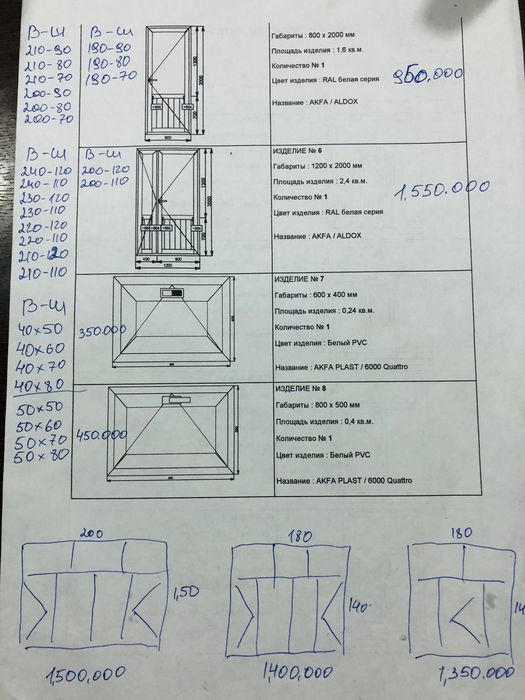 В-Ш
210-90
210-80
210-70
200-90
200-80
200-70
В-Ш
190-90
190-80
190-70
Габариты : 800 x 2000 мм
Площадь изделия : 1,6 кв.м.
Количество № 1
Цвет изделия : RAL белая серия
Название : AKFA / ALDOX
950.000
В-Ш
240-120
240-110
230-120
230-110
220-120
220-110
210-120
210-110
В-Ш
200-120
200-110
400
800
1200
ИЗДЕЛИЕ № 6
Габариты : 1200 x 2000 мм
Площадь изделия : 2,4 кв.м.
Количество № 1
Цвет изделия : RAL белая серия
Название : AKFA / ALDOX
1,550.000
В-Ш
40x50
40x60
40x70
40x80
350.000
ИЗДЕЛИЕ № 7
Габариты : 600 x 400 мм
Площадь изделия : 0,24 кв.м.
Количество № 1
Цвет изделия : Белый PVC
Название : AKFA PLAST / 6000 Quattro
50x50
50x60
50x70
50x80
450.000
ИЗДЕЛИЕ № 8
Габариты : 800 x 500 мм
Площадь изделия : 0,4 кв.м.
Количество № 1
Цвет изделия : Белый PVC
Название : AKFA PLAST / 6000 Quattro
200
1,50
1,500,000
180
140
1,400,000
180
14
1,350.000